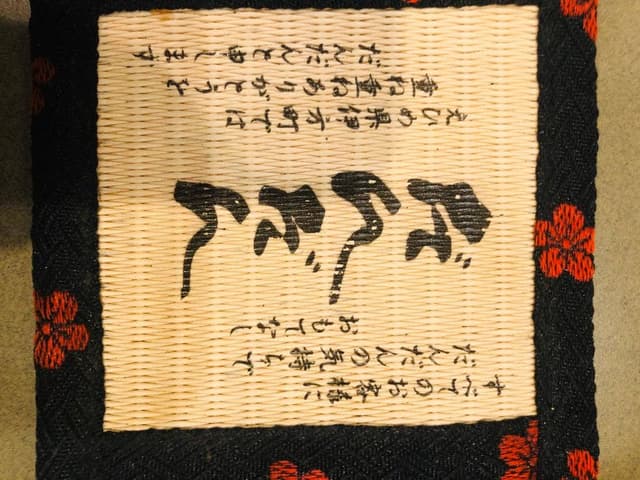 すべてのお客様に
だんだんの気持ちで
おもてなし
だんだん
えひめ県伊方町では
重ね重ねありがとうを
だんだんと申します